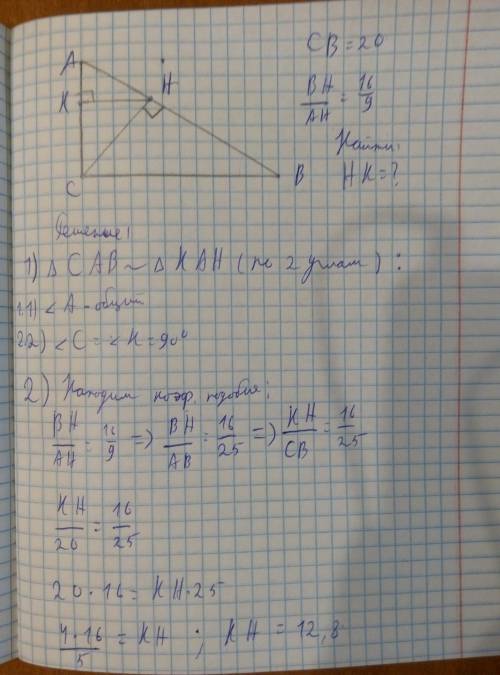 A
K
H
C
B
CB = 20
BH/AH = 16/9
Найти:
HK = ?
Решение:
1) △ CAB ~ △ KAH (по 2 углам):
1.1) ∠A - общий
2.2) ∠C = ∠K = 90°
2) Находим коэф. подобия:
BH/AH = 16/9 => BH/AB = 16/25 => KH/CB = 16/25
KH/20 = 16/25
20 · 16 = KH · 25
4 · 16/5 = KH ; KH = 12,8